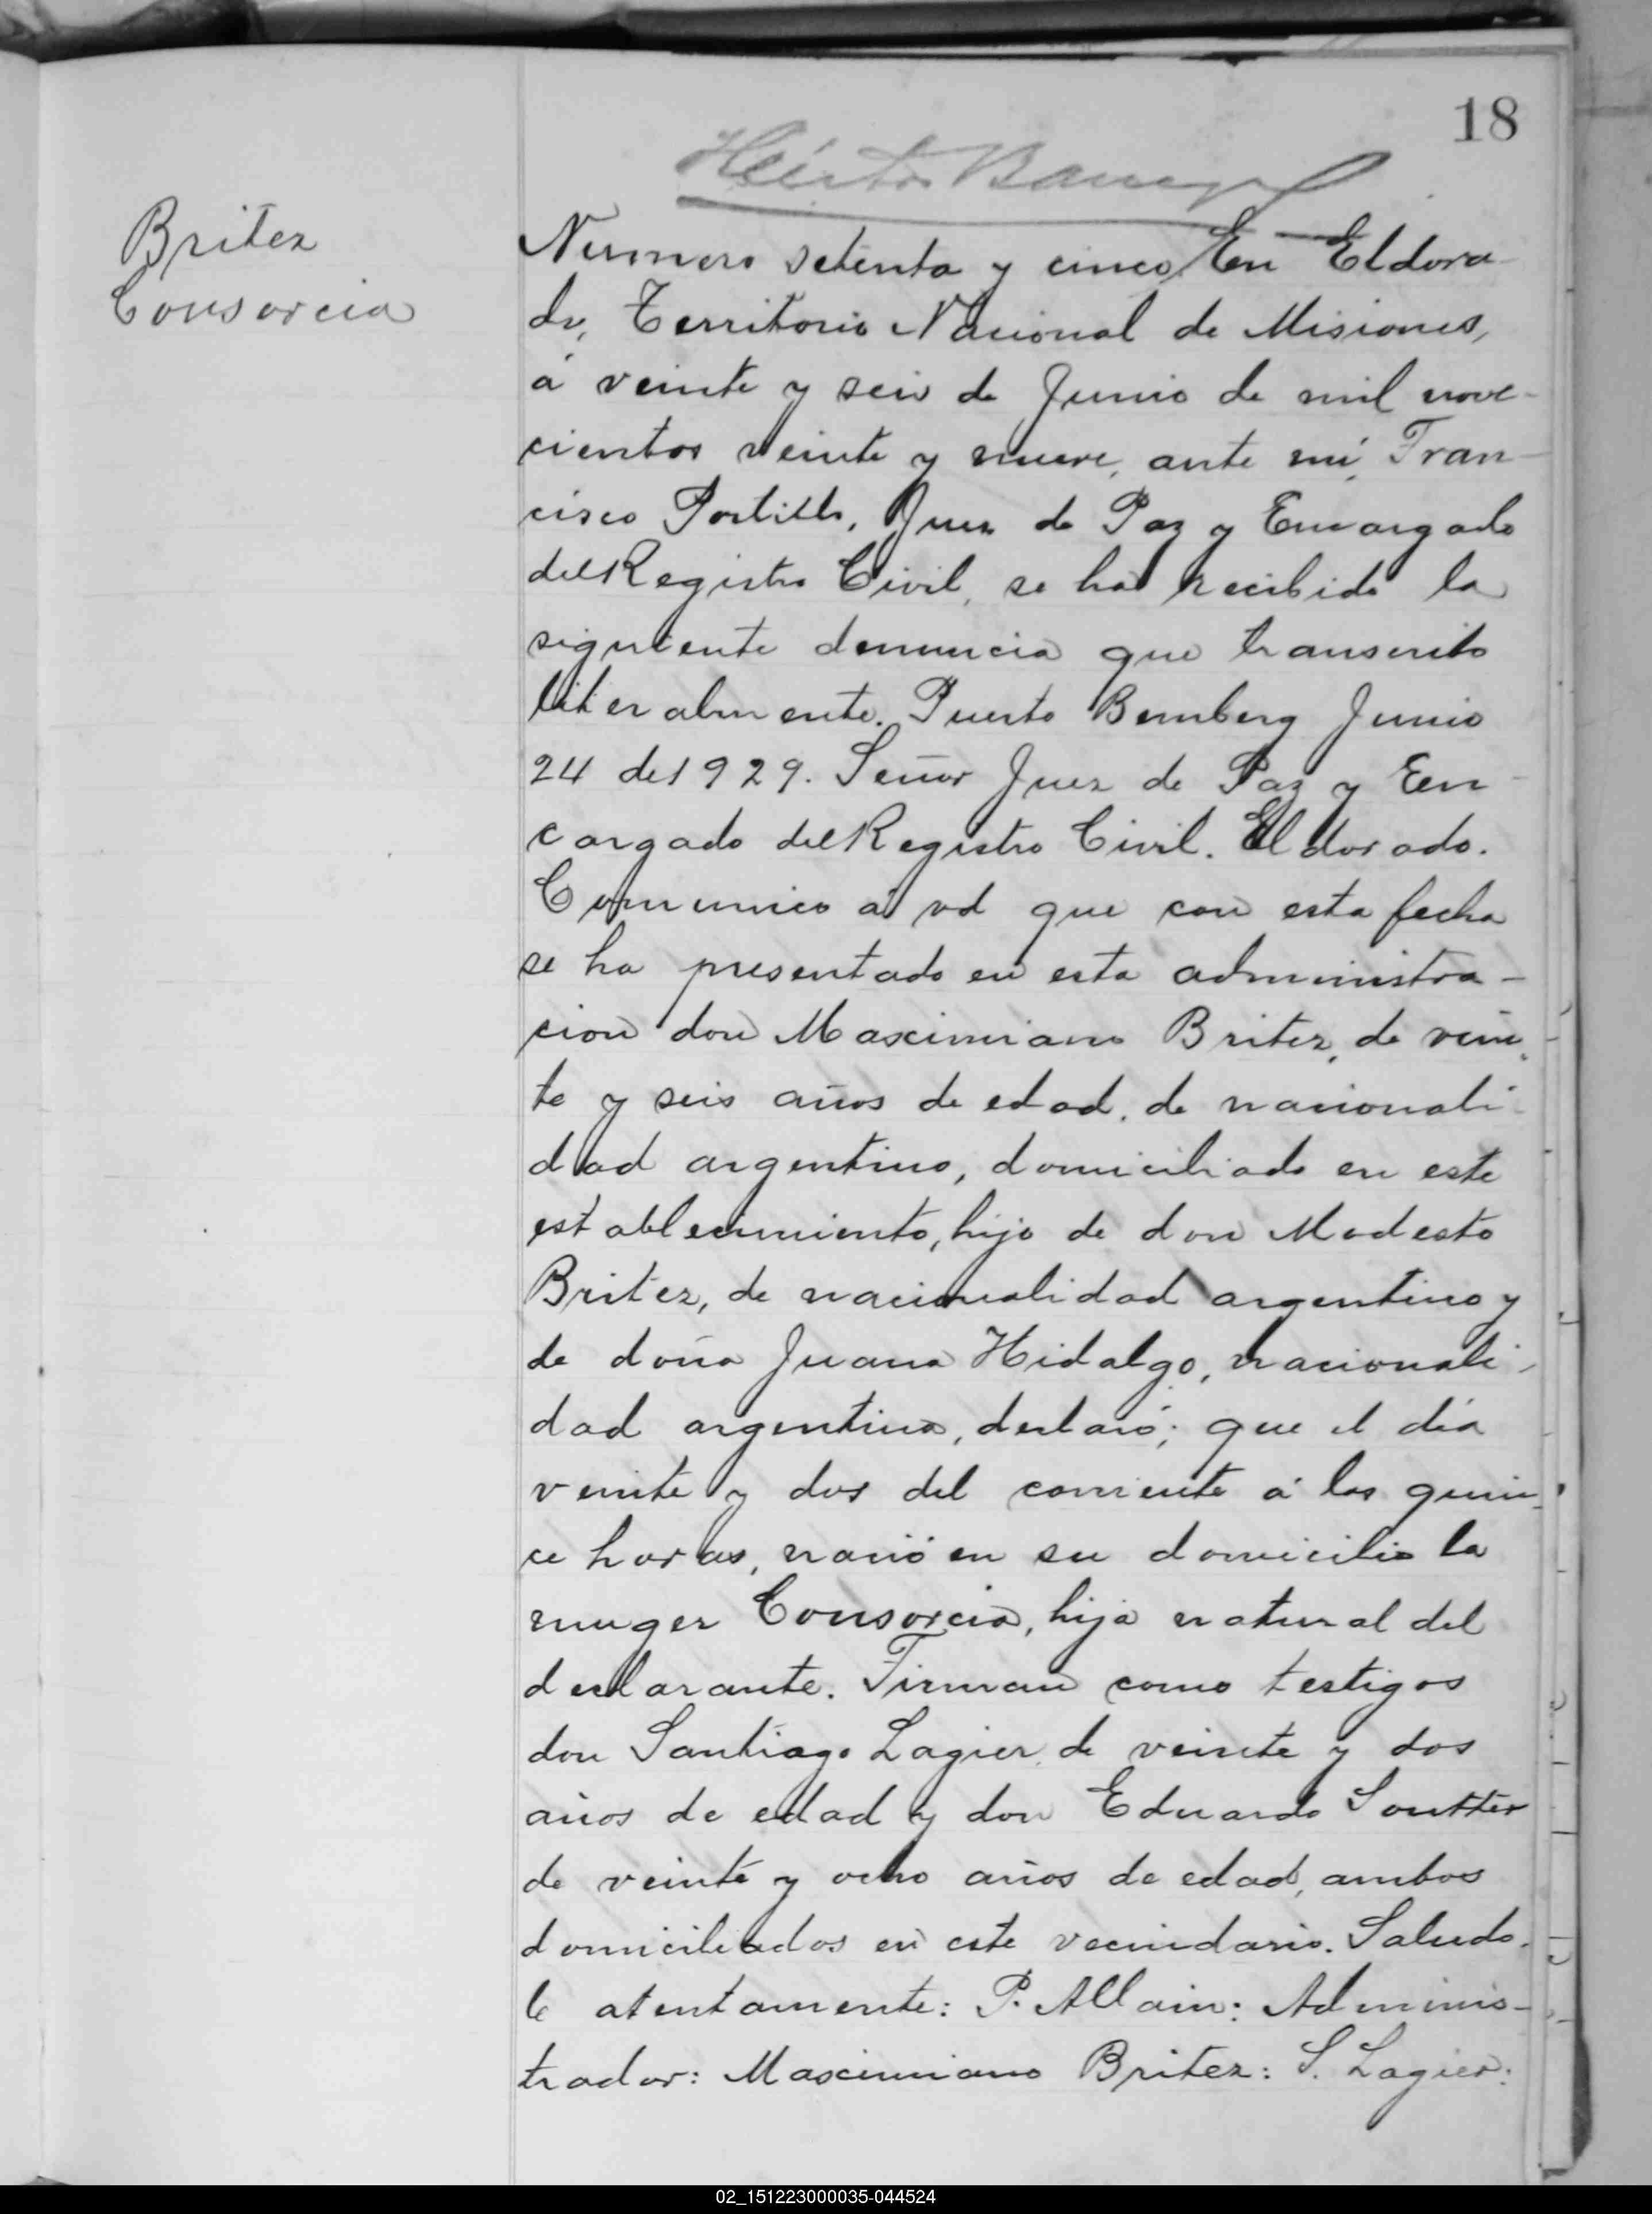 18
Britez
Consorcia
Numero setenta y cinco En Eldora-
do, Territorio Nacional de Misiones,
á veinte y seis de Junio de mil nove-
cientos veinte y nueve, ante mí, Fran-
cisco Portillo, Juez de Paz y Encargado
del Registro Civil, se ha recibido la
siguiente denuncia que transcrito
literalmente. Puerto Bemberg Junio
24 de 1929. Señor Juez de Paz y En-
cargado del Registro Civil. Eldorado.
Comunico á vd que con esta fecha
se ha presentado en esta administra-
cion don Mascimiano Britez, de vein-
te y seis años de edad, de nacionali-
dad argentino, domiciliado en este
establecimiento, hijo de don Modesto
Britez, de nacionalidad argentino y
de doña Juana Hidalgo, nacionali-
dad argentina, declaró; que el día
veinte y dos del corriente á las quin-
ce horas, nació en su domicilio la
muger Consorcia, hija natural del
declarante. Firman como testigos
don Santiago Lagier, de veinte y dos
años de edad y don Eduardo Soutter
de veinte y ocho años de edad, ambos
domiciliados en este vecindario. Saludo-
le atentamente: P. Allain: Adminis-
trador: Mascimiano Britez: S. Lagier:
02_151223000035-044524